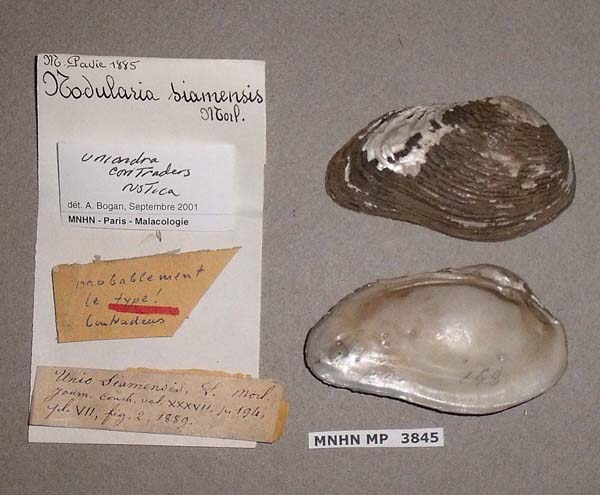 M. Pavie 1885
Nodularia siamensis
Morl.
Uniandra
contradens
rustica
dét. A. Bogan, Septembre 2001
MNHN - Paris - Malacologie
probablement
le type!
Contradens
Unio Siamensis, L. Morl.
Journ. Conch. vol. XXXVII, p. 194,
pl. VII, fig. 2, 1889.
MNHN MP 3845